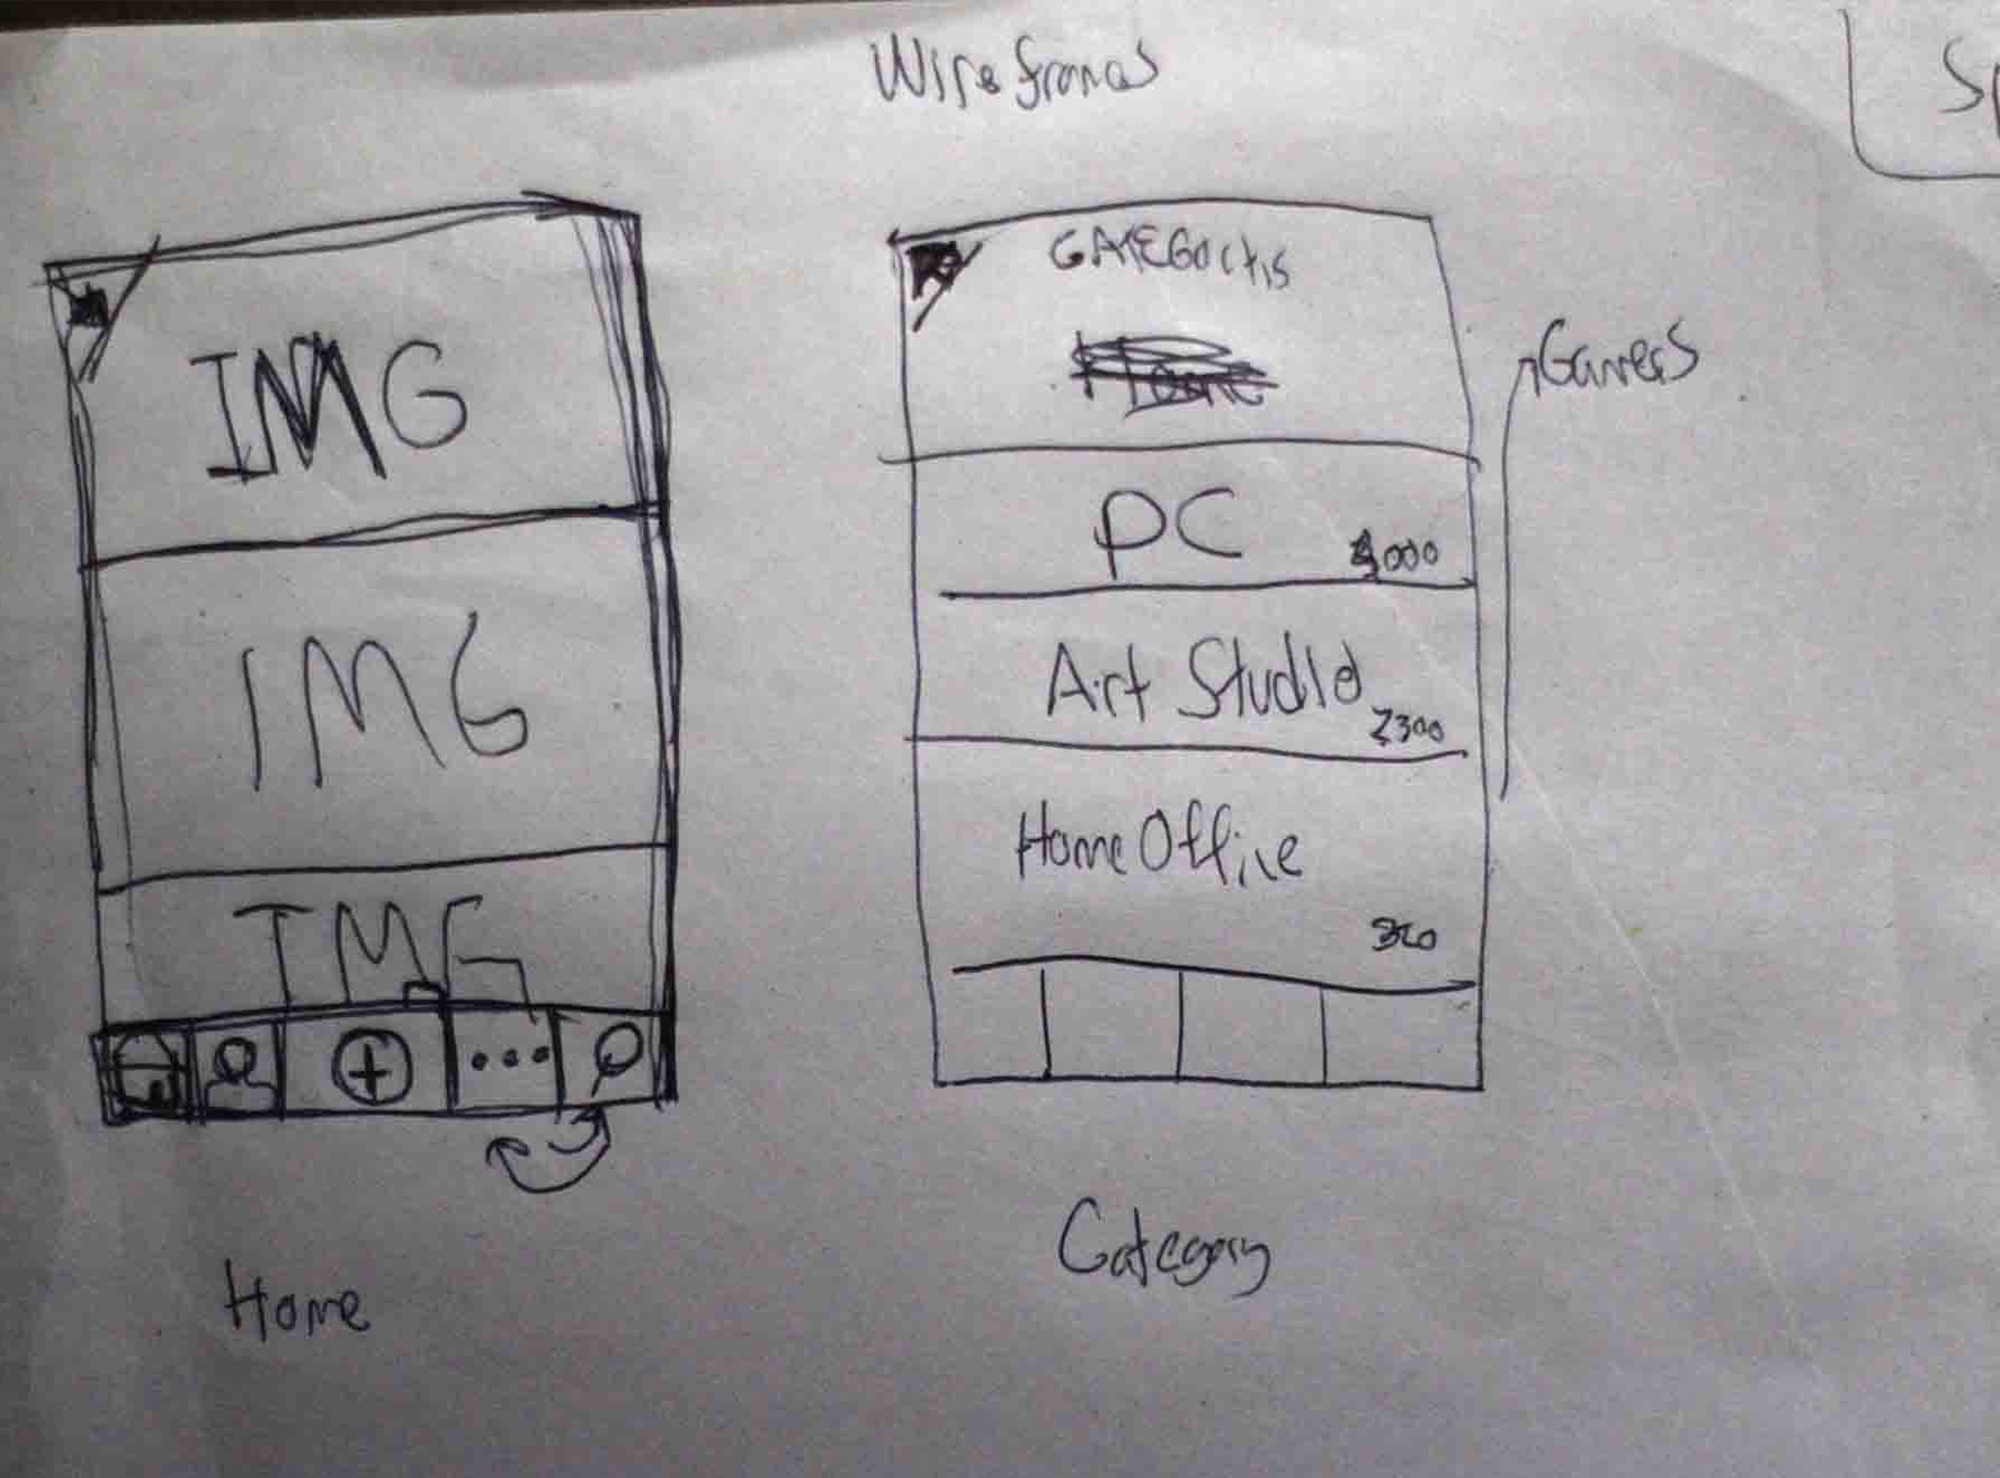 Wireframes
Sp
IMG
IMG
IMG
Home
CATEGORIES
PC
Art Studio
2300
Home Office
300
Category